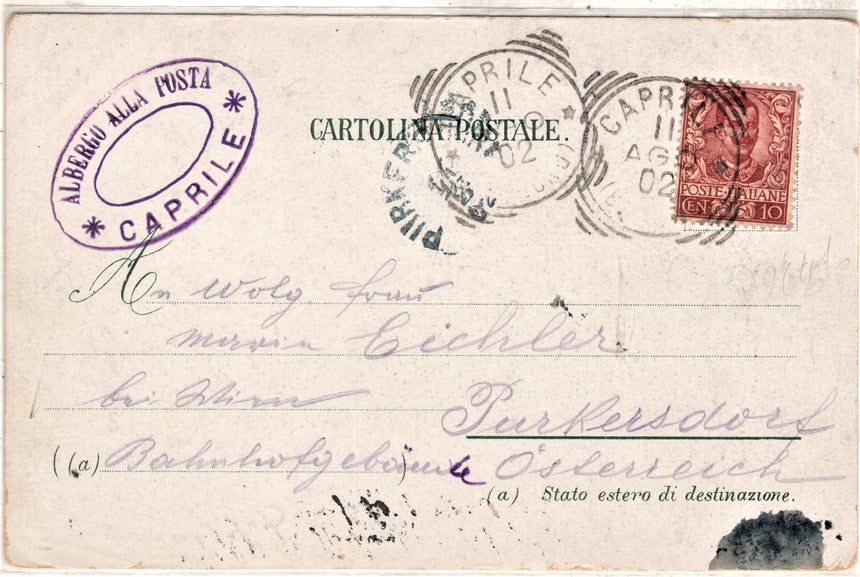 ALBERGO ALLA POSTA
* CAPRILE *
CARTOLINA POSTALE.
CAPRILE
11
02
CAPRILE
11
AGO
02
POSTE·ITALIANE
CEN 10
An Wolg. Frau
Maria Eichler
bei Wien Purkersdorf
((a) Bahnhofgebäude) Österreich
(a) Stato estero di destinazione.